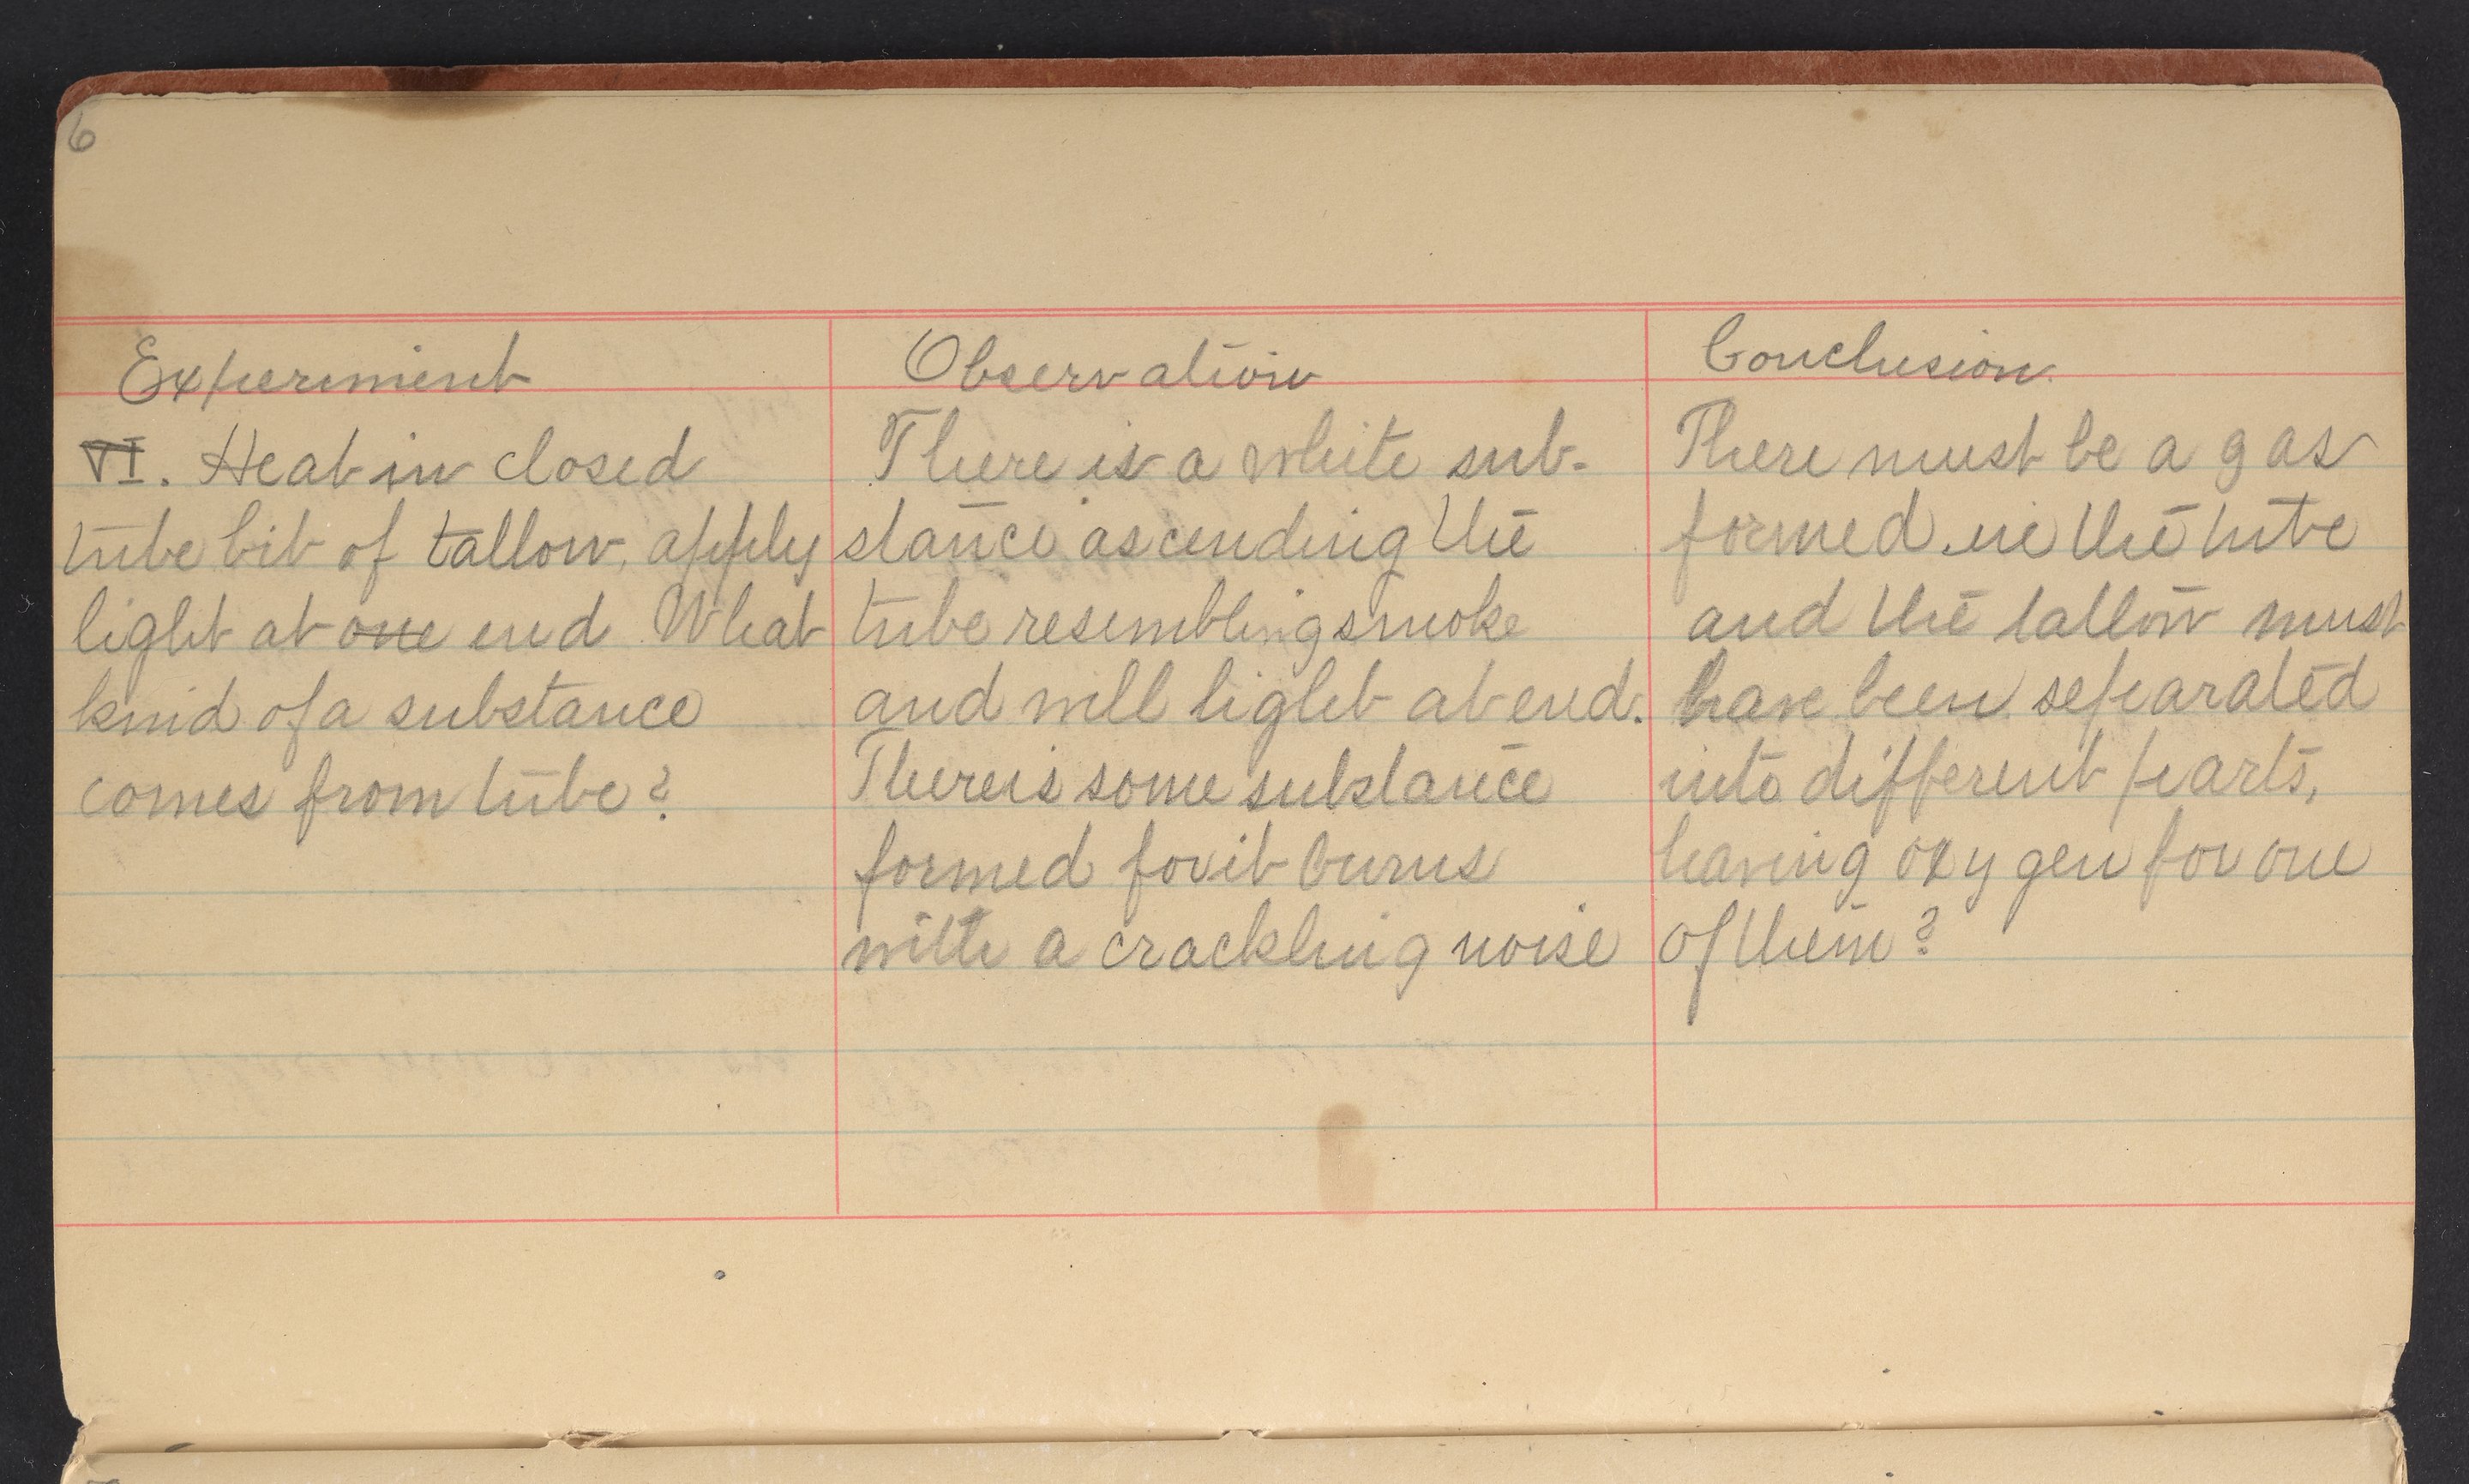 6
Experiment
VI. Heat in closed
tube bit of tallow, apply
light at one end What
kind of a substance
comes from tube?
Observation
There is a white sub-
stance ascending the
tube resembling smoke
and will light at end.
There is some substance
formed for it burns
with a crackling noise
Conclusion.
There must be a gas
formed in the tube
and the tallow must
have been separated
into different parts,
having oxygen for one
of them?